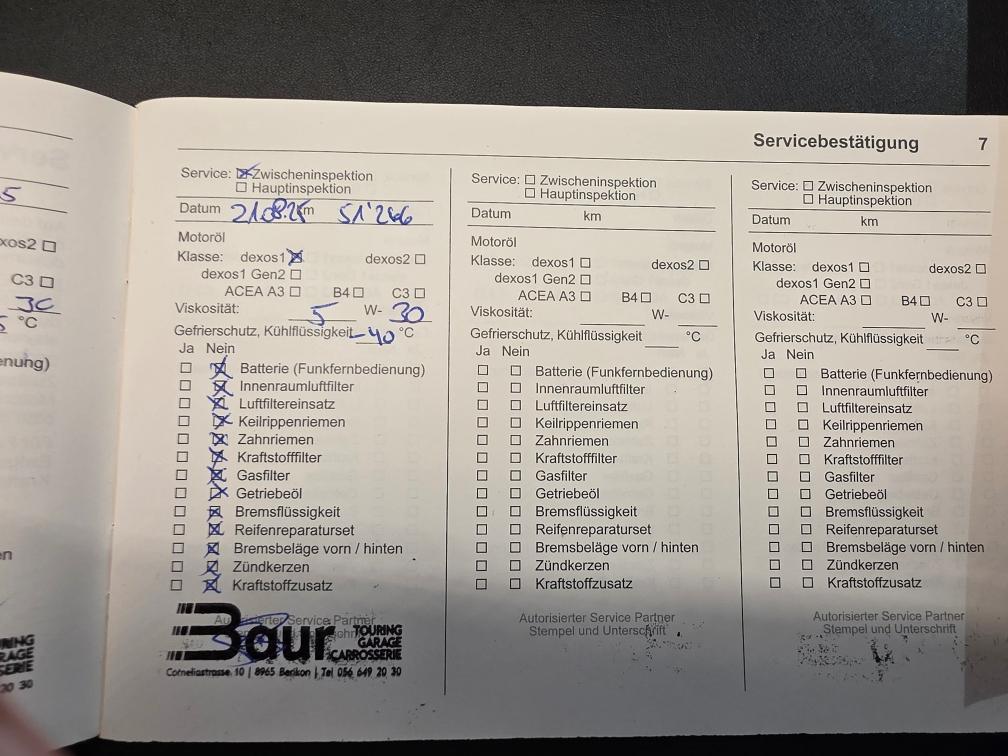 Servicebestätigung 7
5
xos2 ☐
C3 ☐
30
°C
enung)
en
RING
RAGE
SERIE
20 30
Service: ☒ Zwischeninspektion
☐ Hauptinspektion
Datum 21.08.25 km 51'266
Motoröl
Klasse: dexos1 ☒ dexos2 ☐
dexos1 Gen2 ☐
ACEA A3 ☐ B4 ☐ C3 ☐
Viskosität: 5 W- 30
Gefrierschutz, Kühlflüssigkeit -40 °C
Ja Nein
☐ ☒ Batterie (Funkfernbedienung)
☐ ☒ Innenraumluftfilter
☐ ☒ Luftfiltereinsatz
☐ ☒ Keilrippenriemen
☐ ☒ Zahnriemen
☐ ☒ Kraftstofffilter
☐ ☒ Gasfilter
☐ ☒ Getriebeöl
☐ ☒ Bremsflüssigkeit
☐ ☒ Reifenreparaturset
☐ ☒ Bremsbeläge vorn / hinten
☐ ☒ Zündkerzen
☐ ☒ Kraftstoffzusatz
Autorisierter Service Partner
Baur TOURING
GARAGE
CARROSSERIE
Corneliastrasse 10 | 8965 Berikon | Tel 056 649 20 30
Service: ☐ Zwischeninspektion
☐ Hauptinspektion
Datum km
Motoröl
Klasse: dexos1 ☐ dexos2 ☐
dexos1 Gen2 ☐
ACEA A3 ☐ B4 ☐ C3 ☐
Viskosität: W-
Gefrierschutz, Kühlflüssigkeit °C
Ja Nein
☐ ☐ Batterie (Funkfernbedienung)
☐ ☐ Innenraumluftfilter
☐ ☐ Luftfiltereinsatz
☐ ☐ Keilrippenriemen
☐ ☐ Zahnriemen
☐ ☐ Kraftstofffilter
☐ ☐ Gasfilter
☐ ☐ Getriebeöl
☐ ☐ Bremsflüssigkeit
☐ ☐ Reifenreparaturset
☐ ☐ Bremsbeläge vorn / hinten
☐ ☐ Zündkerzen
☐ ☐ Kraftstoffzusatz
Autorisierter Service Partner
Stempel und Unterschrift
Service: ☐ Zwischeninspektion
☐ Hauptinspektion
Datum km
Motoröl
Klasse: dexos1 ☐ dexos2 ☐
dexos1 Gen2 ☐
ACEA A3 ☐ B4 ☐ C3 ☐
Viskosität: W-
Gefrierschutz, Kühlflüssigkeit °C
Ja Nein
☐ ☐ Batterie (Funkfernbedienung)
☐ ☐ Innenraumluftfilter
☐ ☐ Luftfiltereinsatz
☐ ☐ Keilrippenriemen
☐ ☐ Zahnriemen
☐ ☐ Kraftstofffilter
☐ ☐ Gasfilter
☐ ☐ Getriebeöl
☐ ☐ Bremsflüssigkeit
☐ ☐ Reifenreparaturset
☐ ☐ Bremsbeläge vorn / hinten
☐ ☐ Zündkerzen
☐ ☐ Kraftstoffzusatz
Autorisierter Service Partner
Stempel und Unterschrift